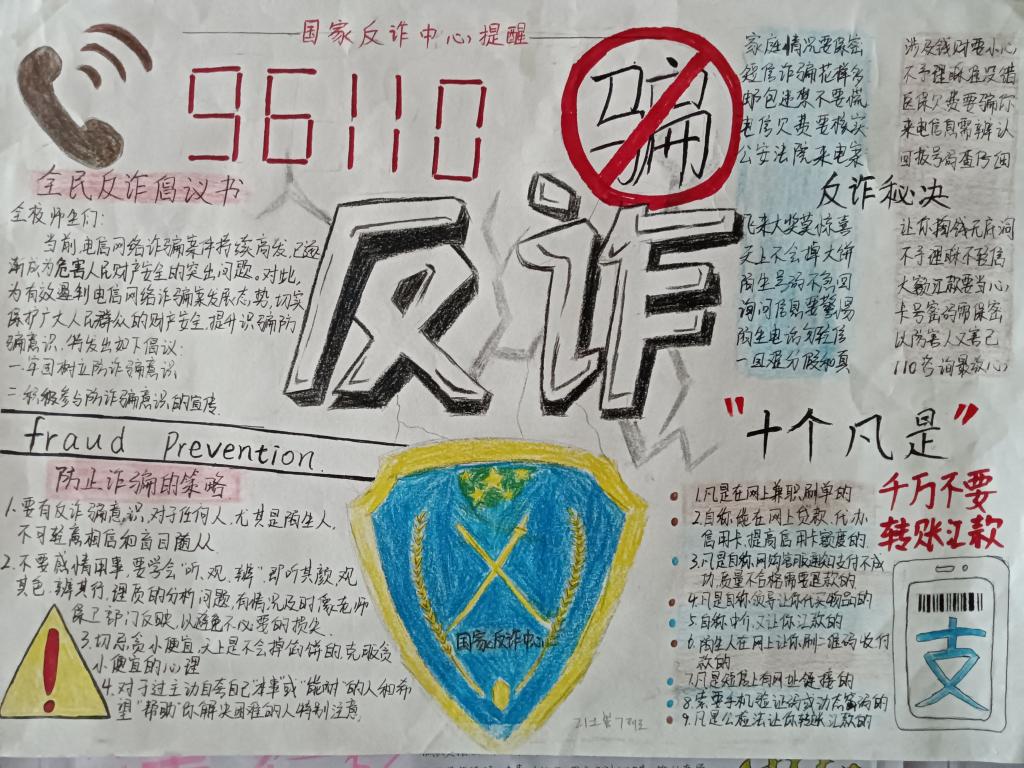 国家反诈中心提醒
96110
骗
反诈
全民反诈倡议书
全校师生们:
当前,电信网络诈骗案件持续高发,已逐
渐成为危害人民财产安全的突出问题。对此,
为有效遏制电信网络诈骗案发展态势,切实
保护广大人民群众的财产安全,提升识骗防
骗意识,特发出如下倡议:
一.牢固树立防诈骗意识
二.积极参与防诈骗意识的宣传
fraud Prevention.
防止诈骗的策略
1.要有反诈骗意识,对于任何人,尤其是陌生人,
不可轻离相信和盲目随从
2.不要感情用事,要学会“听、观、辨”,即听其颜,观
其色,辨其行,理员的分析问题,有情况及时像老师
部门反映,以避免不必要的损失
3.切忌贪小便宜,天上是不会掉馅饼的,克服贪
小便宜的心理
4.对于过主动自套自己“本事”或“能耐”的人和希
望“帮助”你解决困难的人特别注意.
国家反诈中心
家庭情况要保密
短信诈骗花样多
邮包违禁不要慌
电信欠费要核实
公安法院来电案
涉及钱财要小心
不予理睬准没错
医保欠费要骗你
来电信息需辨认
回拨号码查仔细
反诈秘决
飞来大奖莫惊喜
天上不会掉大饼
陌生号码不急回
询问信息要警惕
陌生电话勿轻信
一旦难分假和真
让你掏钱无底洞
不予理睬不轻信
大额汇款要当心
卡号密码需保密
以防害人又害己
110咨询最放心
"十个凡是"
千万不要
转账汇款
1.凡是在网上兼职刷单的
2.自称能在网上贷款、代办
信用卡,提高信用卡额度的
3.凡是自称网购客服通知支付不成
功,质量不合格需要退款的
4.凡是自称领导让你代买物品的
5.自称中介,又让你汇款的
6.陌生人在网上让你刷二维码,收付
款的
7.凡是短信上有网址链接的
8.索要手机验证码或动态密码的
9.凡是公检法让你转账汇款的
支